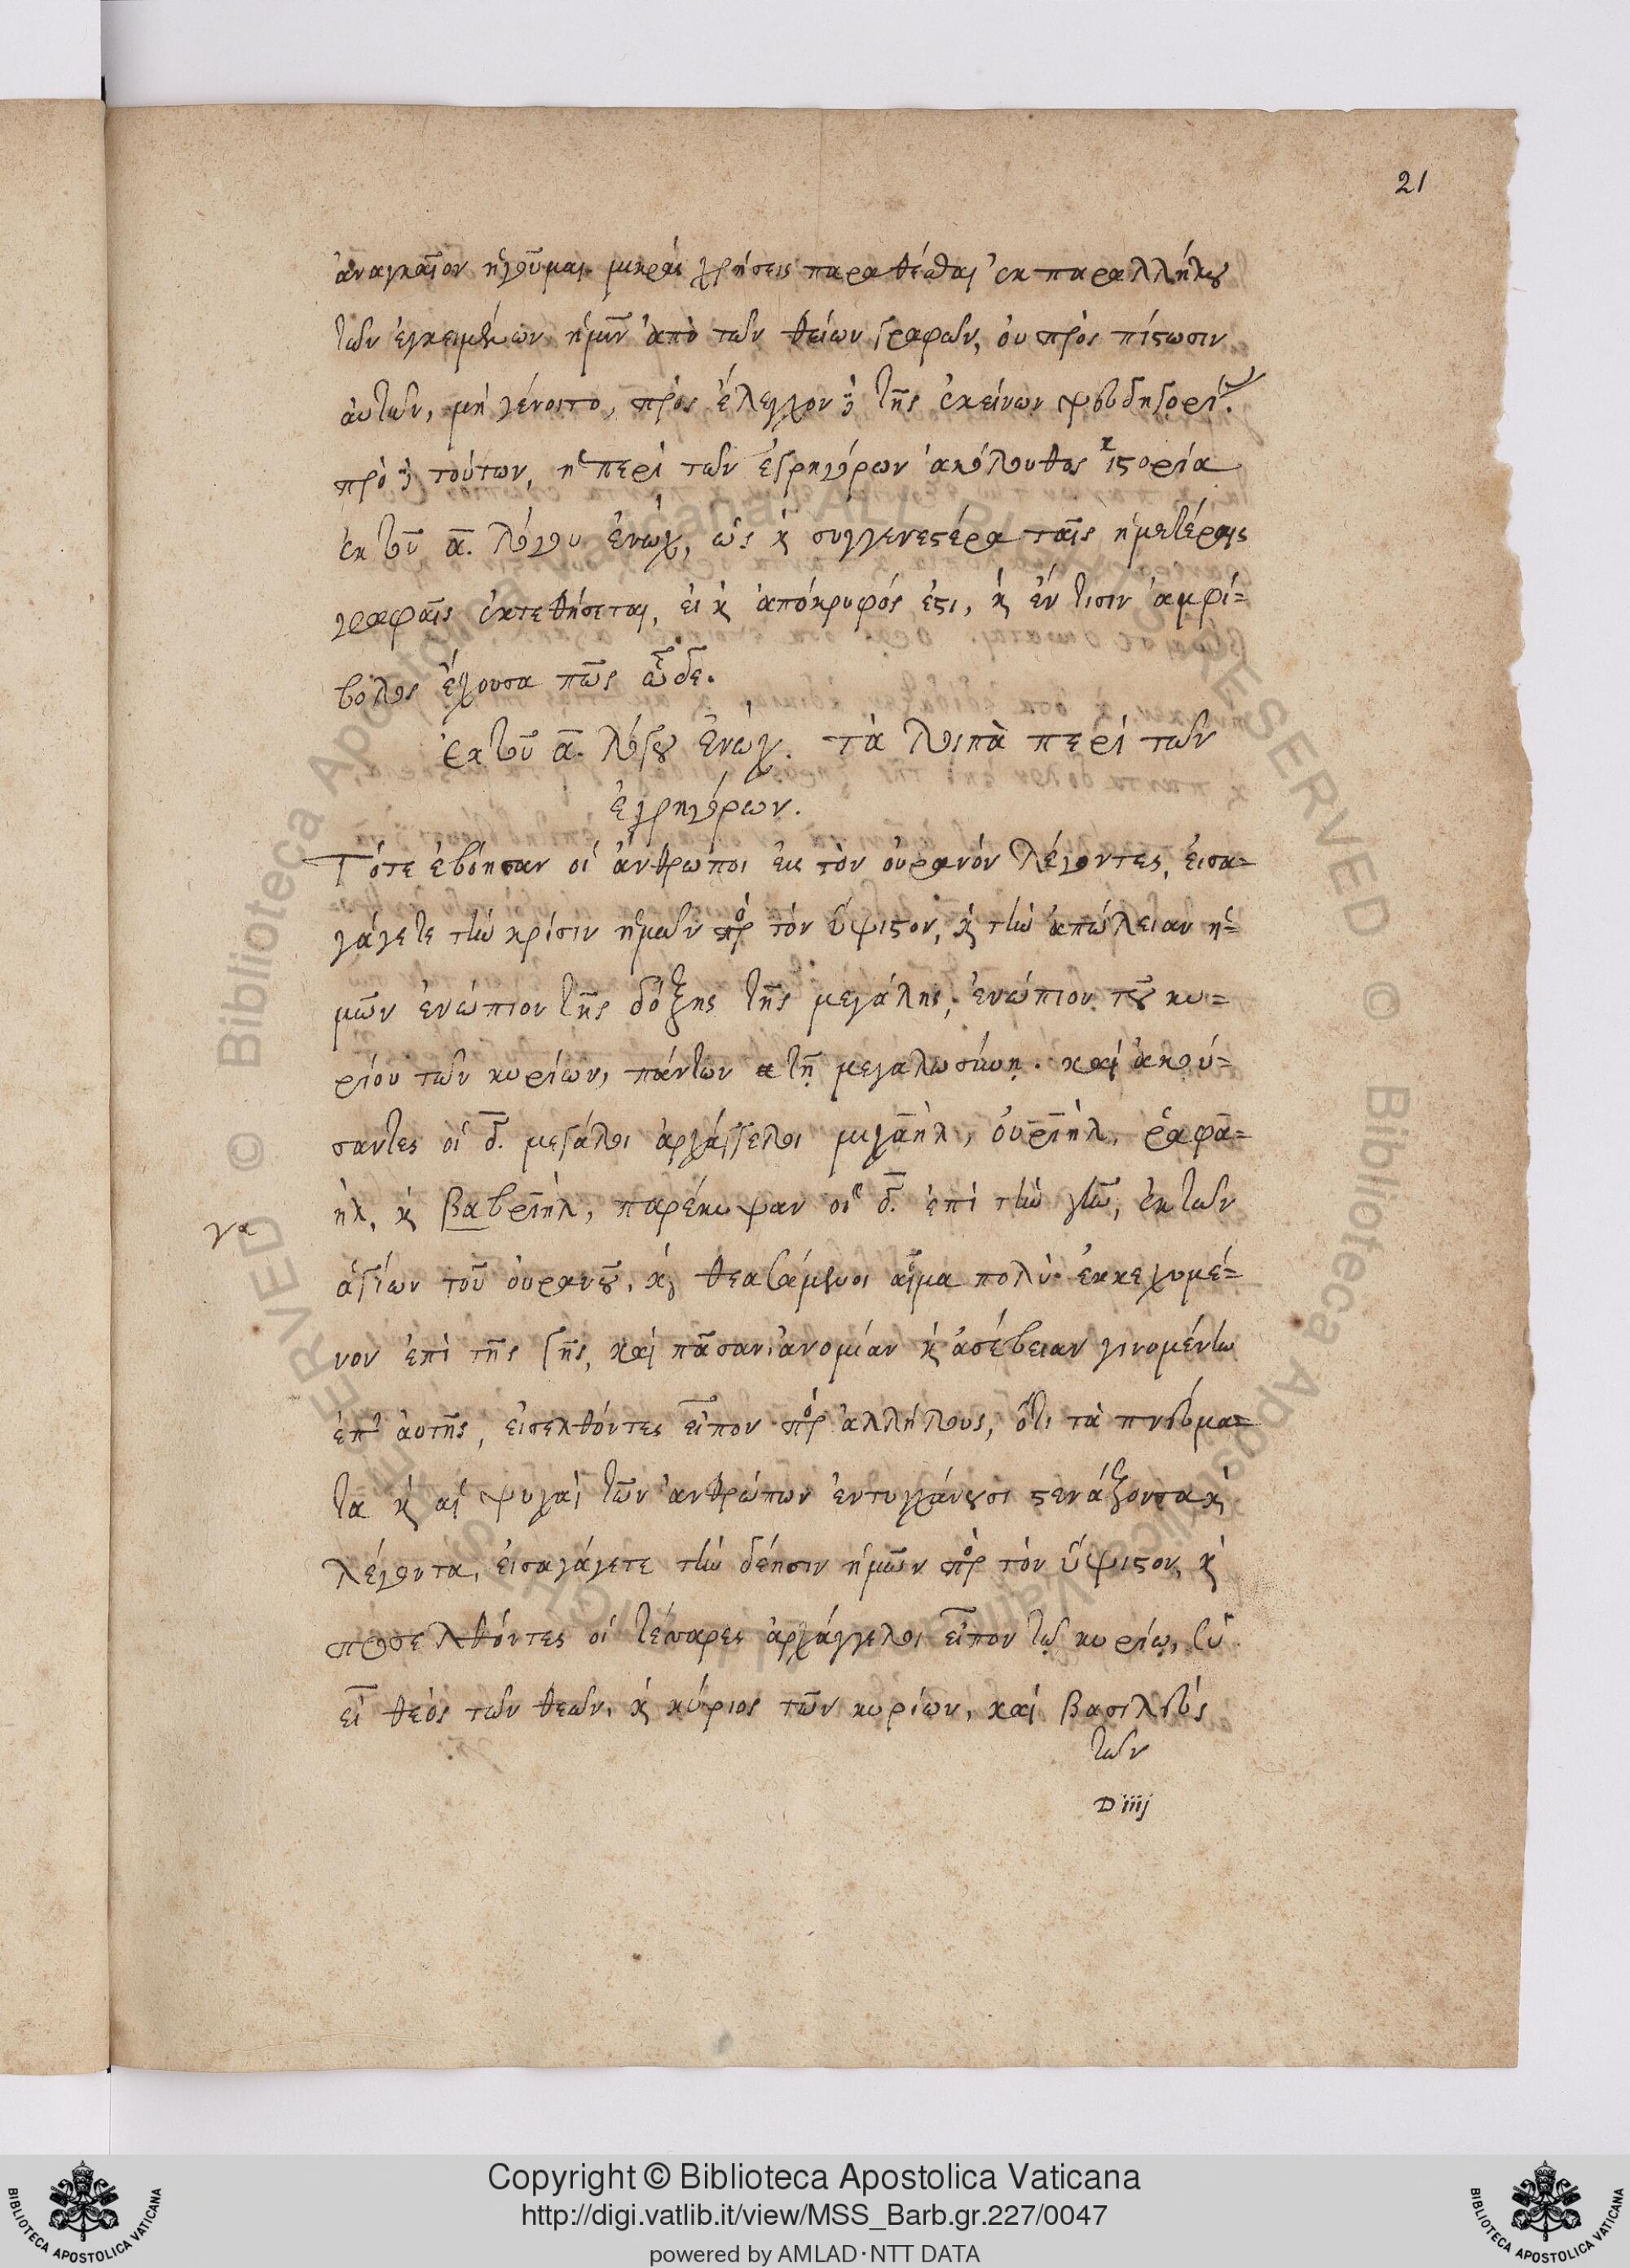 21
ἀναγκαῖον ἡγοῦμαι μικρὰς χρήσεις παραθέσθαι ἐκ παραλλήλου
τῶν ἐγκειμένων ἡμῖν ἀπὸ τῶν θείων γραφῶν, οὐ πρὸς πίστωσιν
αὐτῶν, μὴ γένοιτο, πρὸς ἔλεγχον δὲ τῆς ἐκείνων ψευδηγορί.
πρὸ δὲ τούτων, ἡ περὶ τῶν ἐγρηγόρων ἀκόλουθος ἱστορία
ἐκ τοῦ α. λόγου ἐνώχ, ὡς κ συγγενεστέρα ταῖς ἡμετέραις
γραφαῖς ἐκτεθήσεται, εἰ κ ἀπόκρυφός ἐστι, κ ἔν τισιν ἀμφί=
βολος ἔχουσα πῶς ὧδε.
ἐκ τοῦ α. λόγου Ἐνώχ. τὰ λοιπὰ περὶ τῶν
ἐγρηγόρων.
Τότε ἐβόησαν οἱ ἄνθρωποι εἰς τὸν οὐρανὸν λέγοντες, εἰσα=
γάγετε τὴν κρίσιν ἡμῶν πρὸ τὸν ὕψιστον, κ τὴν ἀπώλειαν ἡ=
μῶν ἐνώπιον τῆς δόξης τῆς μεγάλης, ἐνώπιον τοῦ κυ=
ρίου τῶν κυρίων, πάντων τῇ μεγαλωσύνῃ. καὶ ἀκού=
σαντες οἱ δ. μεγάλοι ἀρχάγγελοι μιχαὴλ, οὐριὴλ, ῥαφα=
ὴλ, κ βαβριὴλ, παρέκυψαν οἱ δ. ἐπὶ τὴν γῆν, ἐκ τῶν
γα
ἁγίων τοῦ οὐρανοῦ, κ θεασάμενοι αἷμα πολὺ ἐκκεχυμέ=
νον ἐπὶ τῆς γῆς, καὶ πᾶσαν ἀνομίαν κ ἀσέβειαν γινομένην
ἐπ' αὐτῆς, εἰσελθόντες εἶπον πρὸ ἀλλήλους, ὅτι τὰ πνεύμα=
τα κ αἱ ψυχαὶ τῶν ἀνθρώπων ἐντυγχάνουσι στενάζοντα κ
λέγοντα, εἰσαγάγετε τὴν δέησιν ἡμῶν πρὸ τὸν ὕψιστον, κ
προσελθόντες οἱ τέσσαρες ἀρχάγγελοι εἶπον τῷ κυρίῳ, σὺ
εἶ θεὸς τῶν θεῶν, κ κύριος τῶν κυρίων, καὶ βασιλεὺς
τῶν
D iiij
© Biblioteca Apostolica Vaticana ALL RIGHTS RESERVED
Copyright © Biblioteca Apostolica Vaticana
http://digi.vatlib.it/view/MSS_Barb.gr.227/0047
powered by AMLAD·NTT DATA
BIBLIOTECA APOSTOLICA VATICANA
BIBLIOTECA APOSTOLICA VATICANA